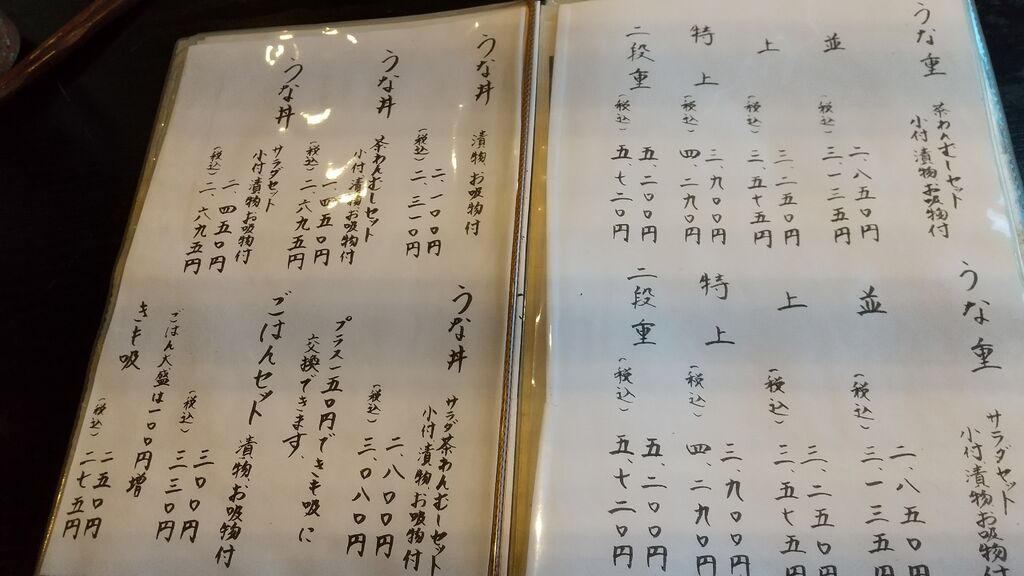 うな重
茶わんむしセット
小付漬物お吸物付
並
二、八五〇円
(税込) 三、一三五円
上
三、二五〇円
(税込) 三、五七五円
特上
三、九〇〇円
(税込) 四、二九〇円
二段重
五、二〇〇円
(税込) 五、七二〇円
うな重
サラダセット
小付漬物お吸物付
並
二、八五〇円
(税込) 三、一三五円
上
三、二五〇円
(税込) 三、五七五円
特上
三、九〇〇円
(税込) 四、二九〇円
二段重
五、二〇〇円
(税込) 五、七二〇円
うな丼 漬物お吸物付
二、一〇〇円
(税込) 二、三一〇円
うな丼 茶わんむしセット
小付漬物お吸物付
二、四五〇円
(税込) 二、六九五円
うな丼 サラダセット
小付漬物お吸物付
二、四五〇円
(税込) 二、六九五円
うな丼 サラダ茶わんむしセット
小付漬物お吸物付
二、八〇〇円
(税込) 三、〇八〇円
プラス一五〇円できも吸に
交換できます。
ごはんセット 漬物、お吸物付
三〇〇円
(税込) 三三〇円
ごはん大盛は一〇〇円増
きも吸
二五〇円
(税込) 二七五円